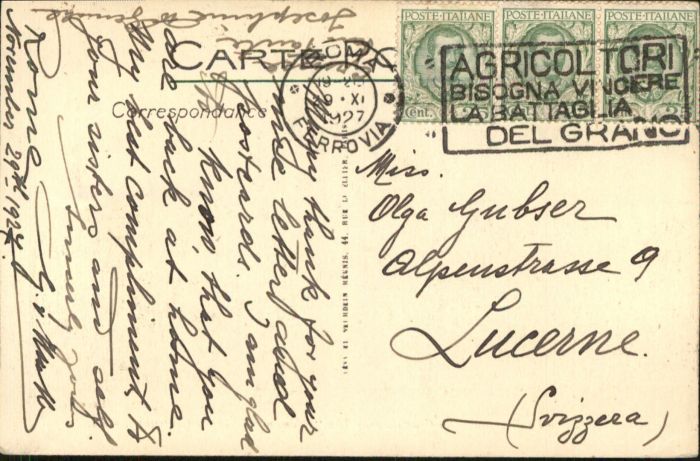 CARTE
Correspondance
POSTE·ITALIANE
POSTE·ITALIANE
POSTE·ITALIANE
Cent. 25
ROMA
XI
1927
FERROVIA
AGRICOLTORI
BISOGNA VINCERE
LA BATTAGLIA
DEL GRANO
Miss.
Olga Gubser
Alpenstrasse 9
Lucerne.
(Svizzera)
Many thank for your
nice letter and
Postcards. I am glad
to know, that you
are back at home.
My best compliment to
your sisters and self
Rome
November 29th 1927
Josephine